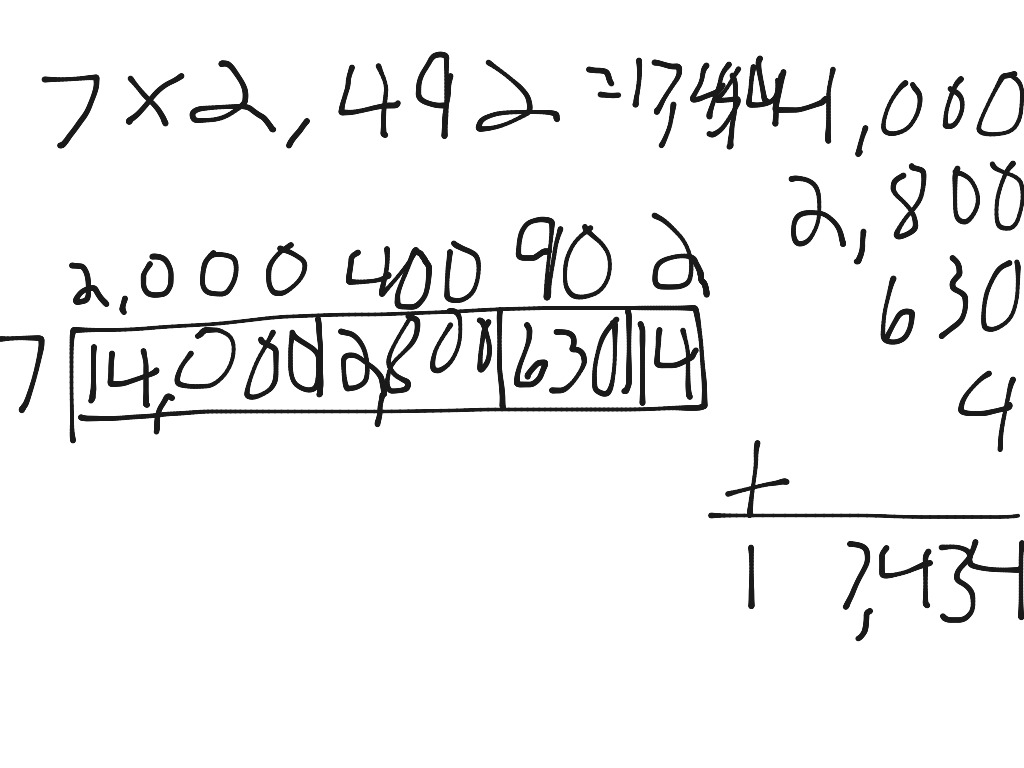 7 × 2,492 = 17,4
14,000
2,800
2,000 400 90 2
630
7 14,000 2,800 630 14
4
+
17,434